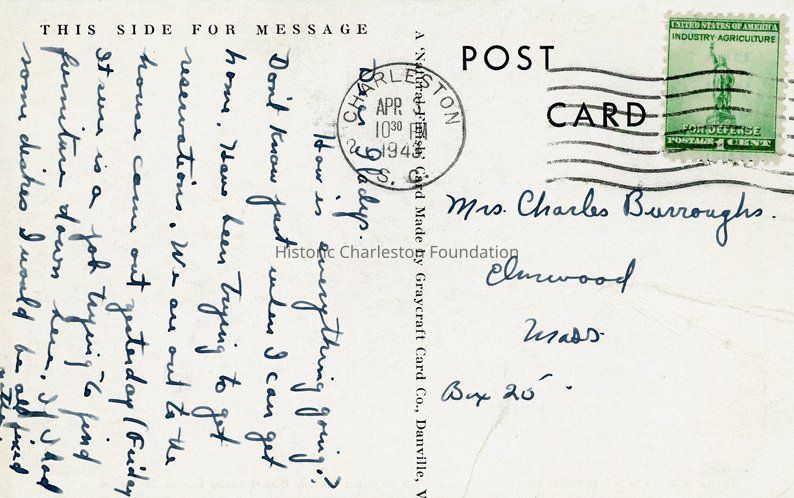 THIS SIDE FOR MESSAGE
Dear Gladys.
How is everything going?
Don't know just when I can get
home. Have been trying to get
reservations. We are out to the
house came out yesterday (Friday
It sure is a job trying to find
furniture down here. If I had
some dishes I would be all fixed
A "Natural Finish" Card Made by Graycraft Card Co., Danville, V
CHARLESTON
APR
10 30 PM
194
S.
POST
CARD
UNITED STATES OF AMERICA
INDUSTRY·AGRICULTURE
FOR DEFENSE
POSTAGE 1 CENT
Mrs. Charles Burroughs.
Elmwood
Mass
Box 25
Historic Charleston Foundation